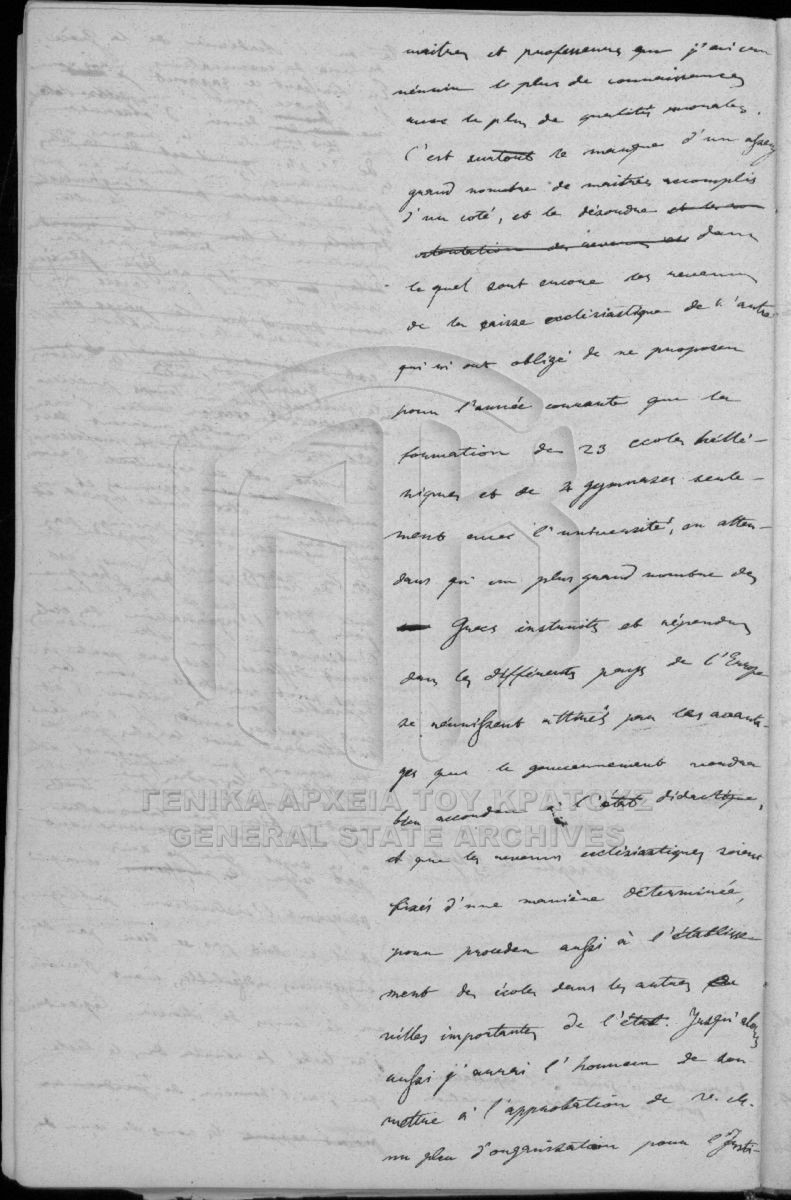 maitres et professeurs que j'ai cru
réunir le plus de connaissances
avec le plus de qualités morales.
C'est surtout le manque d'un assez
grand nombre de maitres accomplis
d'un coté, et le désordre et les
des revenus dans
lequel sont encore les revenus
de la caisse ecclésiastique de l'autre
qui m'ont obligé de ne proposer
pour l'année courante que la
formation de 23 ecoles hellé-
niques et de 4 gymnases seule-
ment avec l'université, en atten-
dant qu'un plus grand nombre des
Grecs instruits et répendus
dans les différents pays de l'Europe
se réunissent attirés par les avanta-
ges que le gouvernement voudra
bien accorder à l'état didactique,
et que les revenus ecclésiastiques soient
fixés d'une manière déterminée,
pour proceder aussi à l'établisse-
ment des écoles dans les autres
villes importantes de l'état. Jusqu'alors
aussi j'aurai l'honneur de sou-
mettre à l'approbation de
un plan d'organisation pour l'Insti-
ΓΕΝΙΚΑ ΑΡΧΕΙΑ ΤΟΥ ΚΡΑΤΟΥΣ
GENERAL STATE ARCHIVES